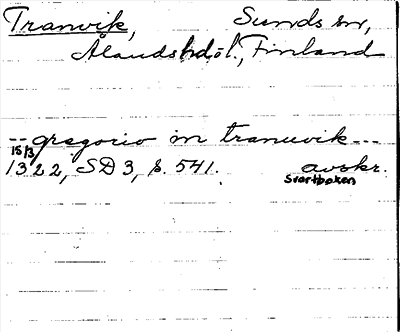 Tranvik, Sunds sn,
Ålands hd o l., Finland
-- gregorio in tranuvik ---
15/3
1322, SD 3, s. 541. avskr.
Svartboken